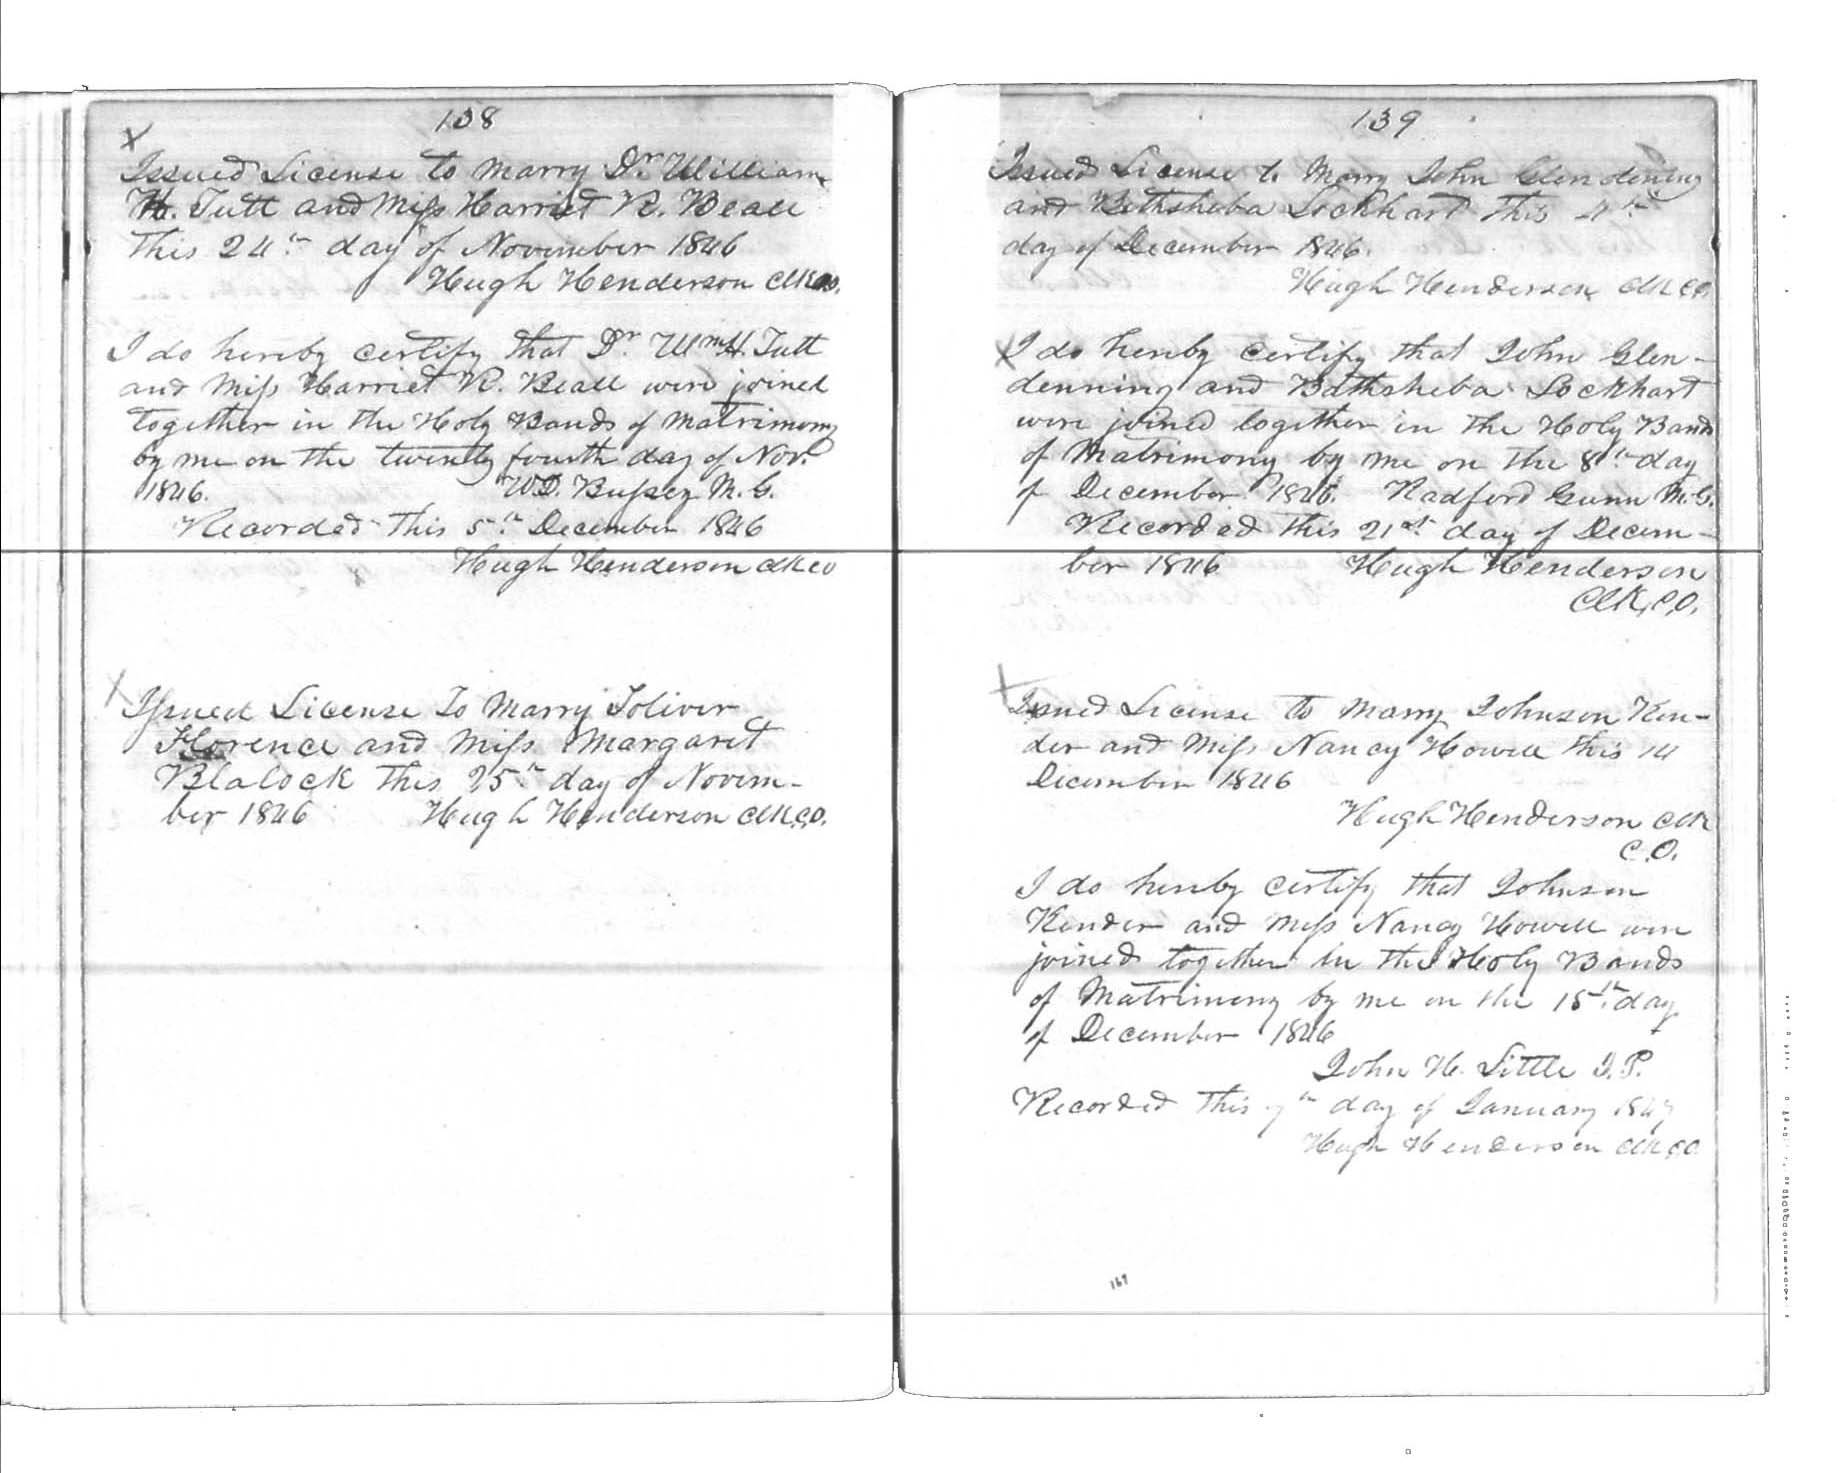 138
Issued License to Marry Dr. William
H. Tutt and Miss Harriet R. Beall
this 24th day of November 1846
Hugh Henderson Clk CO.
I do hereby certify that Dr. Wm H. Tutt
and Miss Harriet R. Beall were joined
together in the Holy Bands of Matrimony
by me on the twenty fourth day of Nov.
1846. W.D. Bussey M.G.
Recorded this 5th December 1846
Hugh Henderson Clk CO
Issued License To Marry Toliver
Florence and Miss Margaret
Blalock this 25th day of Novem-
ber 1846 Hugh Henderson Clk C.O.
139
Issued License to Marry John Glendening
and Bethsheba Lockhart this 4th
day of December 1846.
Hugh Henderson Clk C.O.
I do hereby certify that John Glen-
denning and Bathsheba Lockhart
were joined together in the Holy Bands
of Matrimony by me on the 8th day
of December 1846. Radford Gunn M.G.
Recorded this 21st day of Decem-
ber 1846 Hugh Henderson
Clk, C,O.
Issued License to Marry Johnson Ken-
der and Miss Nancy Howell this 14
December 1846
Hugh Henderson Clk
C.O.
I do hereby certify that Johnson
Kender and Miss Nancy Howell were
joined together in the Holy Bands
of Matrimony by me on the 15th day
of December 1846
John H. Little J.P.
Recorded this 7th day of January 1847
Hugh Henderson Clk C.O.